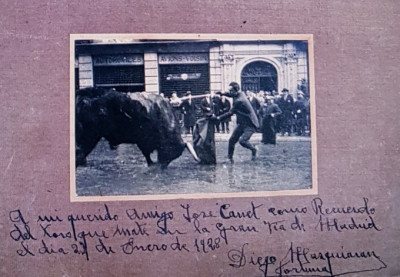 AUTOMOVILES
AVIONS VOISIN
A mi querido Amigo José Canet como Recuerdo
del Toro que maté en la Gran Via de Madrid
el dia 23 de Enero de 1928
Diego Mazquiaran
Fortuna